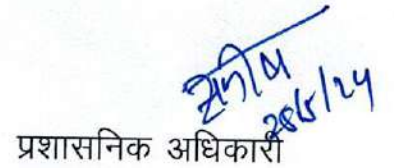 28/5/24
प्रशासनिक अधिकारी